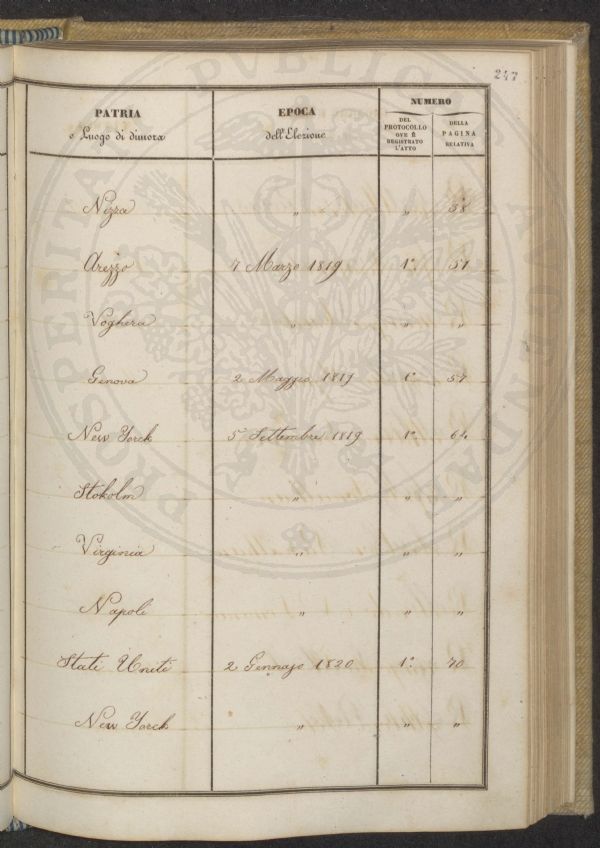 247
PATRIA
e Luogo di dimora
EPOCA
dell'Elezione
NUMERO
DEL
PROTOCOLLO
OVE È
REGISTRATO
L'ATTO
DELLA
PAGINA
RELATIVA
Nizza " " 38
Arezzo 7 Marzo 1819 1º. 51
Voghera " " "
Genova 2 Maggio 1819 1º. 57
New Yorck 5 Settembre 1819 1º. 64
Stokolm " " "
Virginia " " "
Napoli " " "
Stati Uniti 2 Gennajo 1820 1º. 70
New Yorck " " "
PROSPERITATI PUBLICAE AUGENDAE